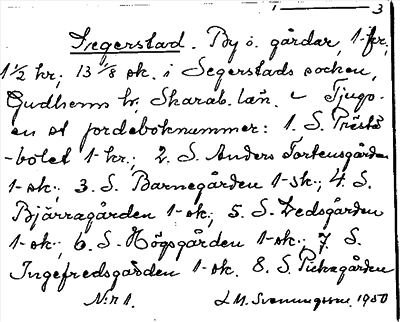 1 — 3
Segerstad. By o. gårdar, 1-fr.,
1 1/2 kr., 13 1/8 sk. i Segerstads socken,
Gudhems hr, Skarab. län. – Tjugo-
en st jordeboknummer: 1. S. Präst-
-bolet 1-kr.; 2. S. Anders Torstensgården
1-sk.; 3. S. Barnegården 1-sk.; 4. S.
Bjärragården 1-sk.; 5. S. Dedsgården
1-sk.; 6. S. Högsgården 1-sk.; 7. S.
Ingefredsgården 1-sk. 8. S. Pickagården
N:r 1. L. M. Svenungsson. 1950